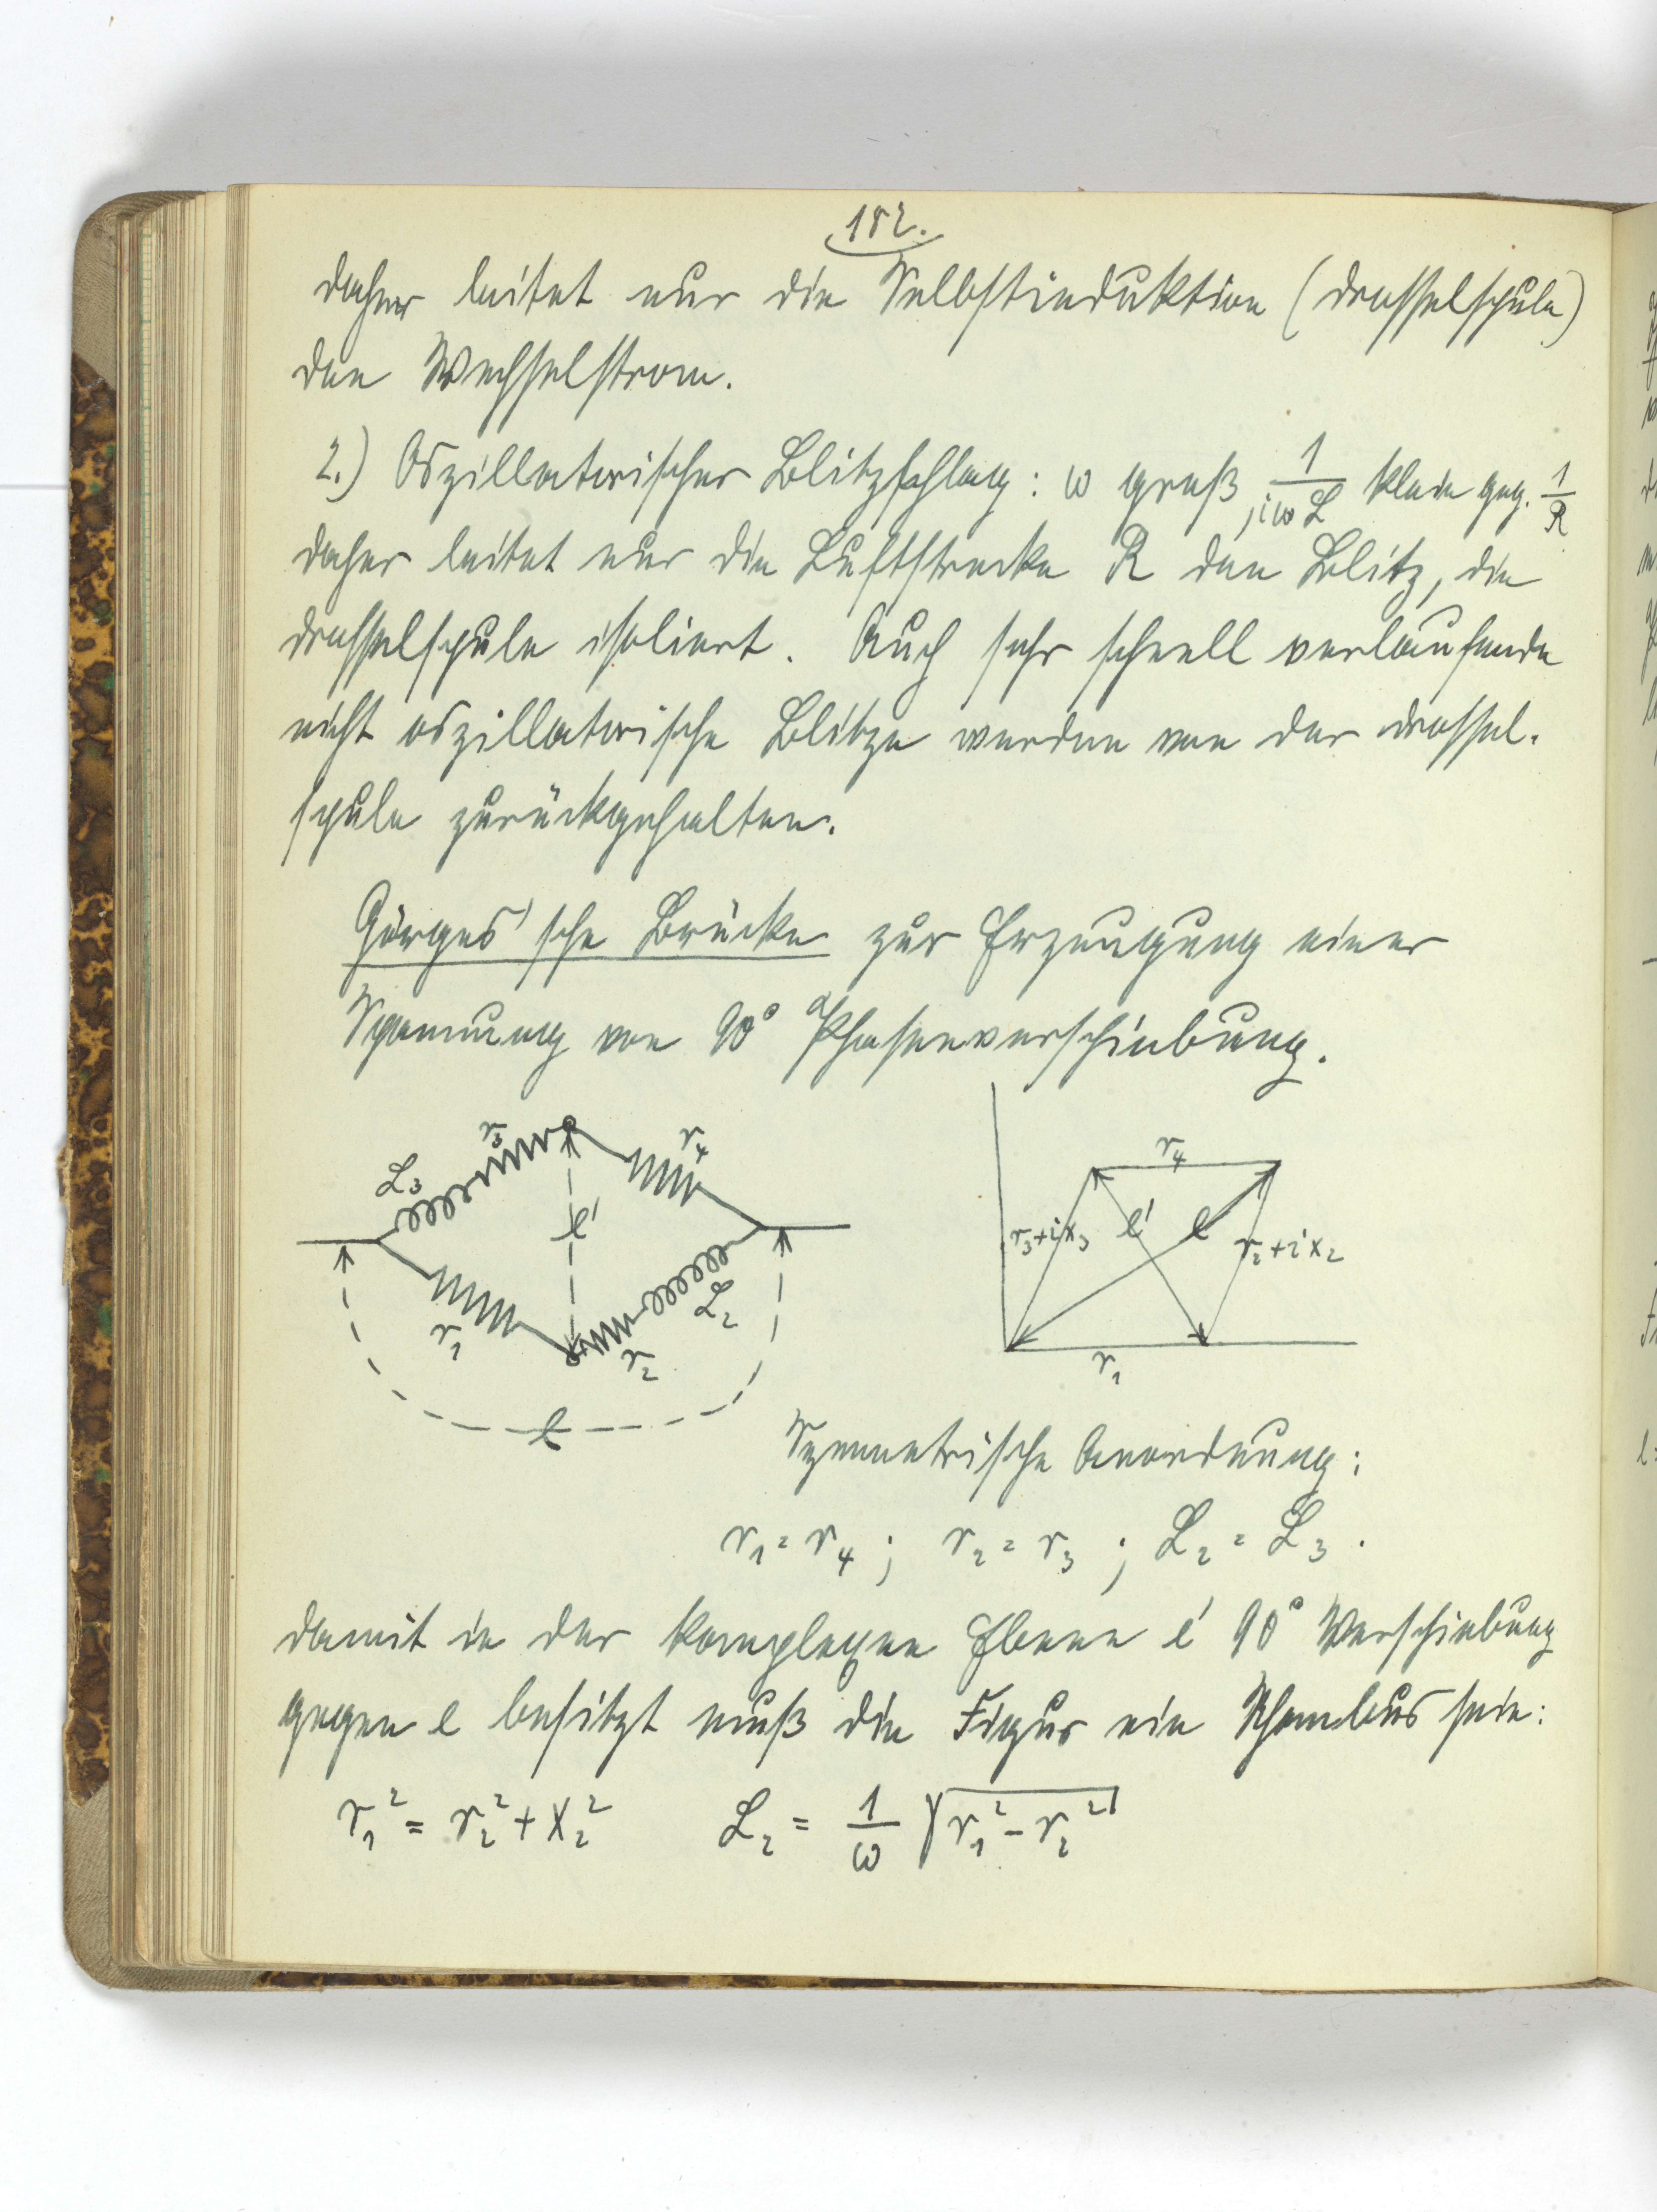 182.
daher leitet nur die Selbstinduktion (Drosselspule)
den Wechselstrom.
2.) Oszillatorischer Blitzschlag: ω groß, 1/iωL klein geg. 1/R
daher leitet nur die Luftstrecke R den Blitz, die
Drosselspule isoliert. Auch sehr schnell verlaufende
nicht oszillatorische Blitze werden von der Drossel-
spule zurückgehalten.
Görges'sche Brücke zur Erzeugung einer
Spannung von 90° Phasenverschiebung.
L₃ r₃ r₄
e'
r₁ r₂ L₂
e
r₄
r₃+ix₃ e' e r₂+ix₂
r₁
Symmetrische Anordnung:
r₁ = r₄ ; r₂ = r₃ ; L₂ = L₃ .
Damit in der komplexen Ebene e' 90° Verschiebung
gegen e besitzt muß die Figur ein Rhombus sein:
r₁² = r₂² + x₂² L₂ = 1/ω √(r₁² - r₂²)